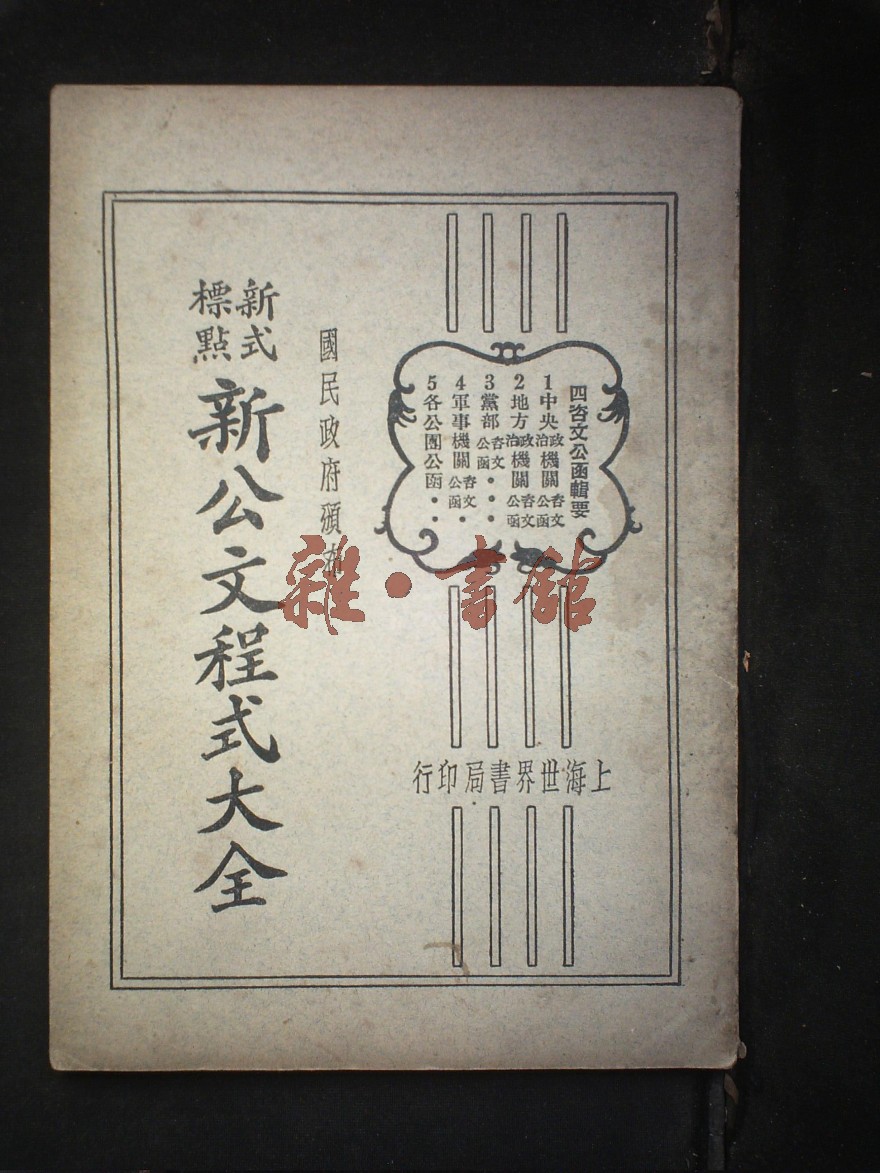 四咨文公函輯要
1中央政治機關咨文公函
2地方政治機關咨文公函
3黨部咨文公函・・・
4軍事機關咨文公函・
5各公團公函・・
上海世界書局印行
國民政府頒
新式標點
新公文程式大全
雜・書館